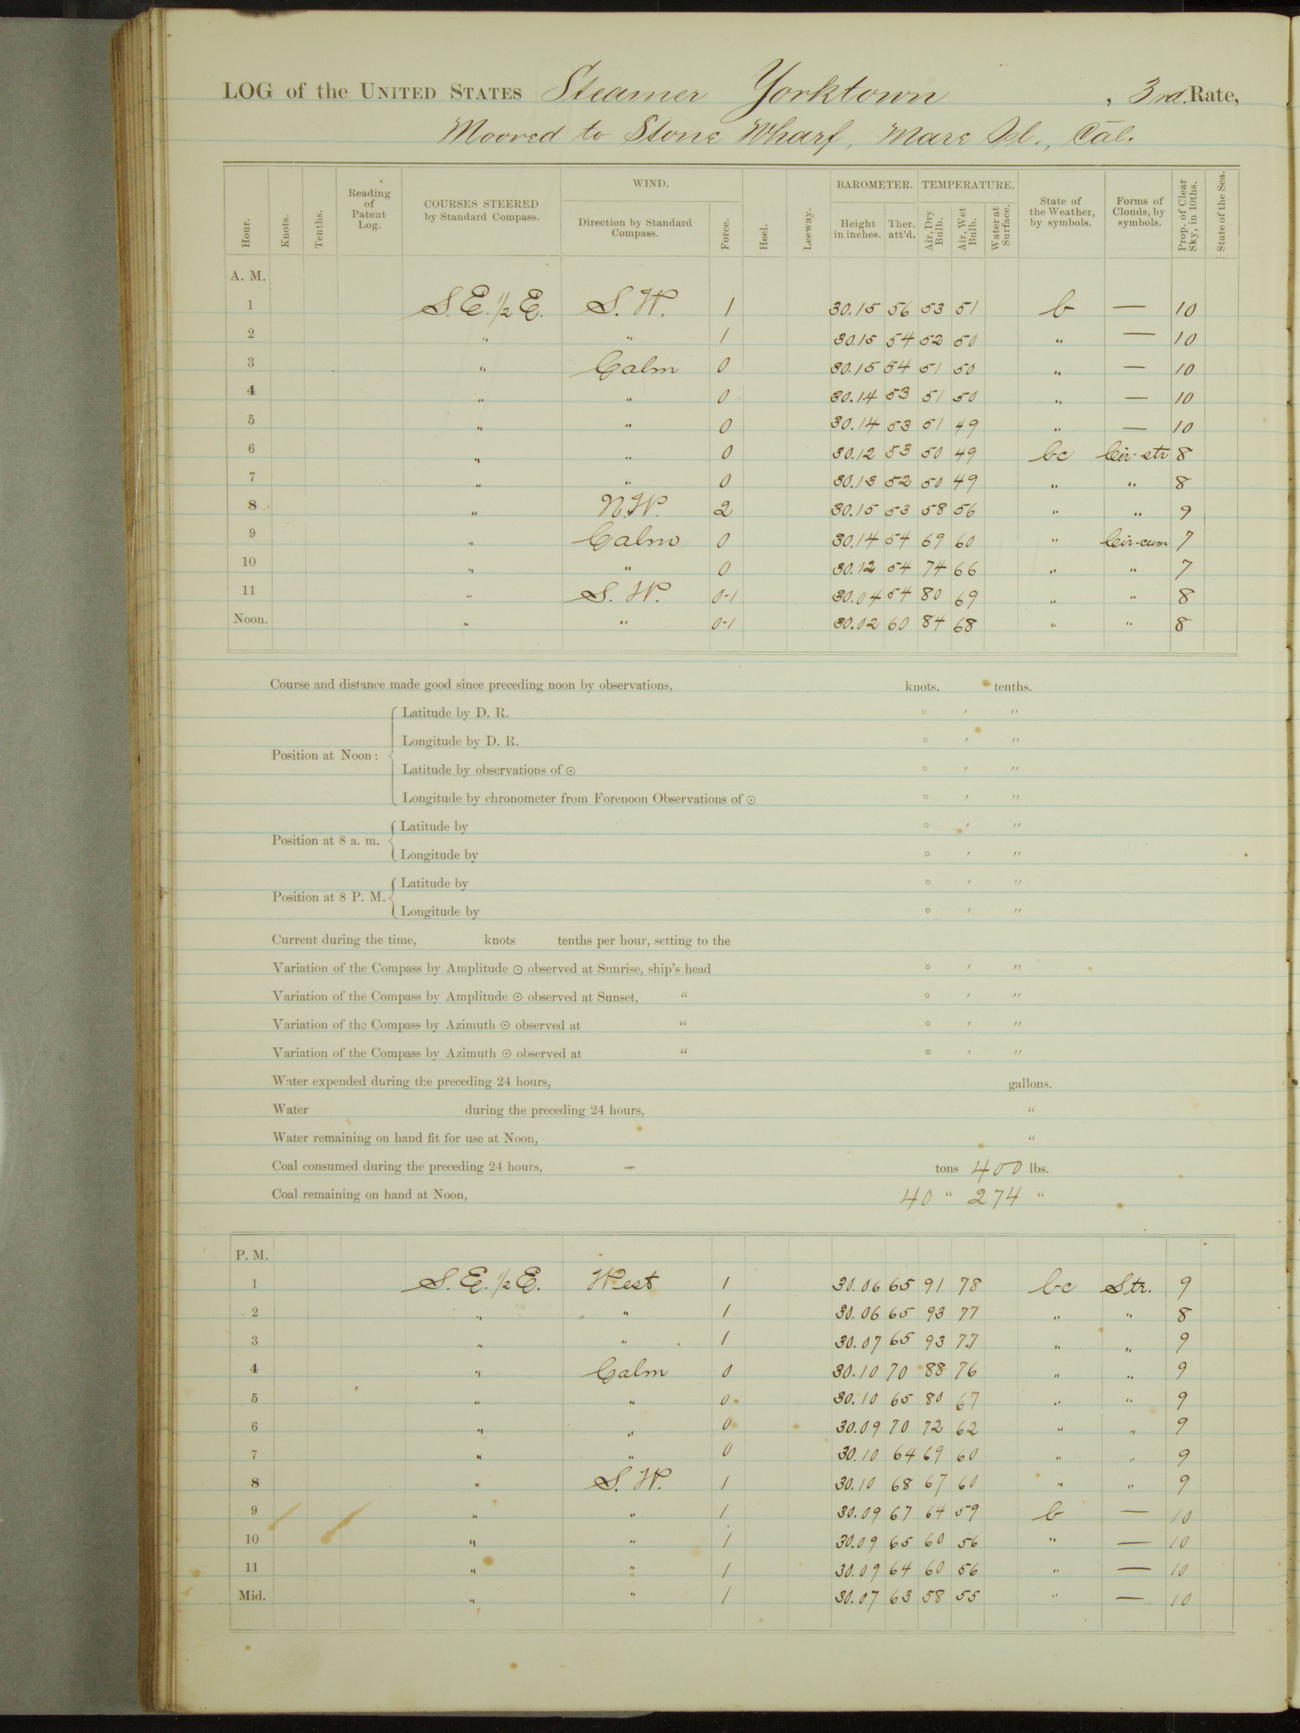 LOG of the UNITED STATES Steamer Yorktown, 3rd. Rate,
Moored to Stone Wharf, Mare Isl., Cal.
Hour. Knots. Tenths. Reading of Patent Log. COURSES STEERED by Standard Compass. WIND. Direction by Standard Compass. Force. Heel. Leeway. BAROMETER. Height in inches. Ther. att'd. TEMPERATURE. Air, Dry Bulb. Air, Wet Bulb. Water at Surface. State of the Weather, by symbols. Forms of Clouds, by symbols. Prop. of Clear Sky, in 10ths. State of the Sea.
A. M.
1 S.E. 1/2 E. S. W. 1 30.15 56 53 51 b — 10
2 " " 1 30.15 54 52 50 " — 10
3 " Calm 0 30.15 54 51 50 " — 10
4 " " 0 30.14 53 51 50 " — 10
5 " " 0 30.14 53 51 49 " — 10
6 " " 0 30.12 53 50 49 bc Cir-str 8
7 " " 0 30.13 52 50 49 " " 8
8 " N.W. 2 30.15 53 58 56 " " 9
9 " Calm 0 30.14 54 69 60 " Cir-cum 7
10 " " 0 30.12 54 74 66 " " 7
11 " S. W. 0-1 30.04 54 80 69 " " 8
Noon. " " 0-1 30.02 60 84 68 " " 8
Course and distance made good since preceding noon by observations, knots. tenths.
Latitude by D. R. ° ′ ″
Longitude by D. R. ° ′ ″
Position at Noon:
Latitude by observations of ☉ ° ′ ″
Longitude by chronometer from Forenoon Observations of ☉ ° ′ ″
Position at 8 a. m. Latitude by ° ′ ″
Longitude by ° ′ ″
Position at 8 P. M. Latitude by ° ′ ″
Longitude by ° ′ ″
Current during the time, knots tenths per hour, setting to the
Variation of the Compass by Amplitude ☉ observed at Sunrise, ship's head ° ′ ″
Variation of the Compass by Amplitude ☉ observed at Sunset, " ° ′ ″
Variation of the Compass by Azimuth ☉ observed at " ° ′ ″
Variation of the Compass by Azimuth ☉ observed at " ° ′ ″
Water expended during the preceding 24 hours, gallons.
Water during the preceding 24 hours, "
Water remaining on hand fit for use at Noon, "
Coal consumed during the preceding 24 hours, — tons 400 lbs.
Coal remaining on hand at Noon, 40 " 274 "
P. M.
1 S. E. 1/2 E. West 1 30.06 65 91 78 bc Str. 9
2 " " 1 30.06 65 93 77 " " 8
3 " " 1 30.07 65 93 77 " " 9
4 " Calm 0 30.10 70 88 76 " " 9
5 " " 0 30.10 65 80 67 " " 9
6 " " 0 30.09 70 72 62 " " 9
7 " " 0 30.10 64 69 60 " " 9
8 " S. W. 1 30.10 68 67 60 " " 9
9 " " 1 30.09 67 64 59 b — 10
10 " " 1 30.09 65 60 56 " — 10
11 " " 1 30.09 64 60 56 " — 10
Mid. " " 1 30.07 63 58 55 " — 10